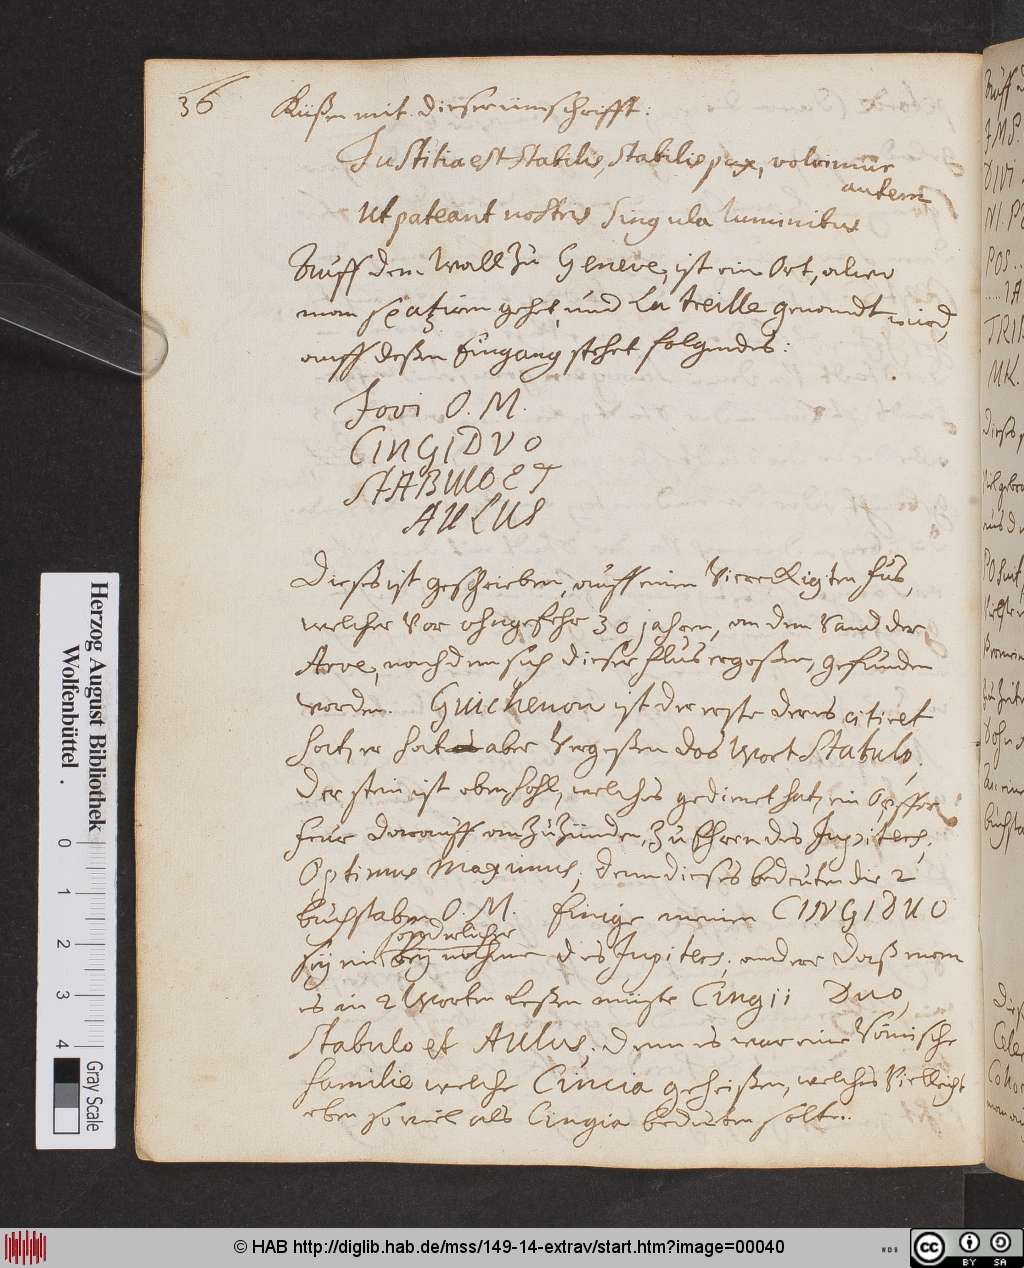 36
Küßen mit dieser ümschrifft:
Justitia est stabilis, stabilis pax, volvimur
autem
Ut pateant nostris singula luminibus
Auff dem Wall zu Geneve, ist ein Ort, alwo
man spatziren gehet, und La treille genandt wird,
auff deßen Eingang stehet folgendes:
Jovi O. M.
CINGIDVO
STABULO ET
AULUS
Dieses ist geschrieben, auff einen Viereckigten fus,
welcher vor ohngefehr 30 jahren, an dem Rand der
Arve, nachdem sich dieser flus ergoßen, gefunden
worden. Guichenon ist der erste der es citiret
hat, er hat aber Vergeßen das Wort Stabulo,
Der stein ist oben hohl, welches gedienet hat, ein Opffer
feur darauff anzuzünden, zu Ehren des Jupiters,
Optimus Maximus, denn dieses bedeuten die 2
buchstaben O. M. Einige meinen CINGIDUO
sonderlicher
sey ein bey nahme des Jupiters, andere daß man
es in 2 Worten leßen müste Cingii Duo,
Stabulo et Aulus, denn es war eine Römische
familie welche Cincia geheißen, welches Vielleicht
eben so viel als Cingia bedeuten solte.
Herzog August Bibliothek
Wolfenbüttel .
0
1
2
3
4
Gray Scale
© HAB http://diglib.hab.de/mss/149-14-extrav/start.htm?image=00040
WDB
cc
BY SA